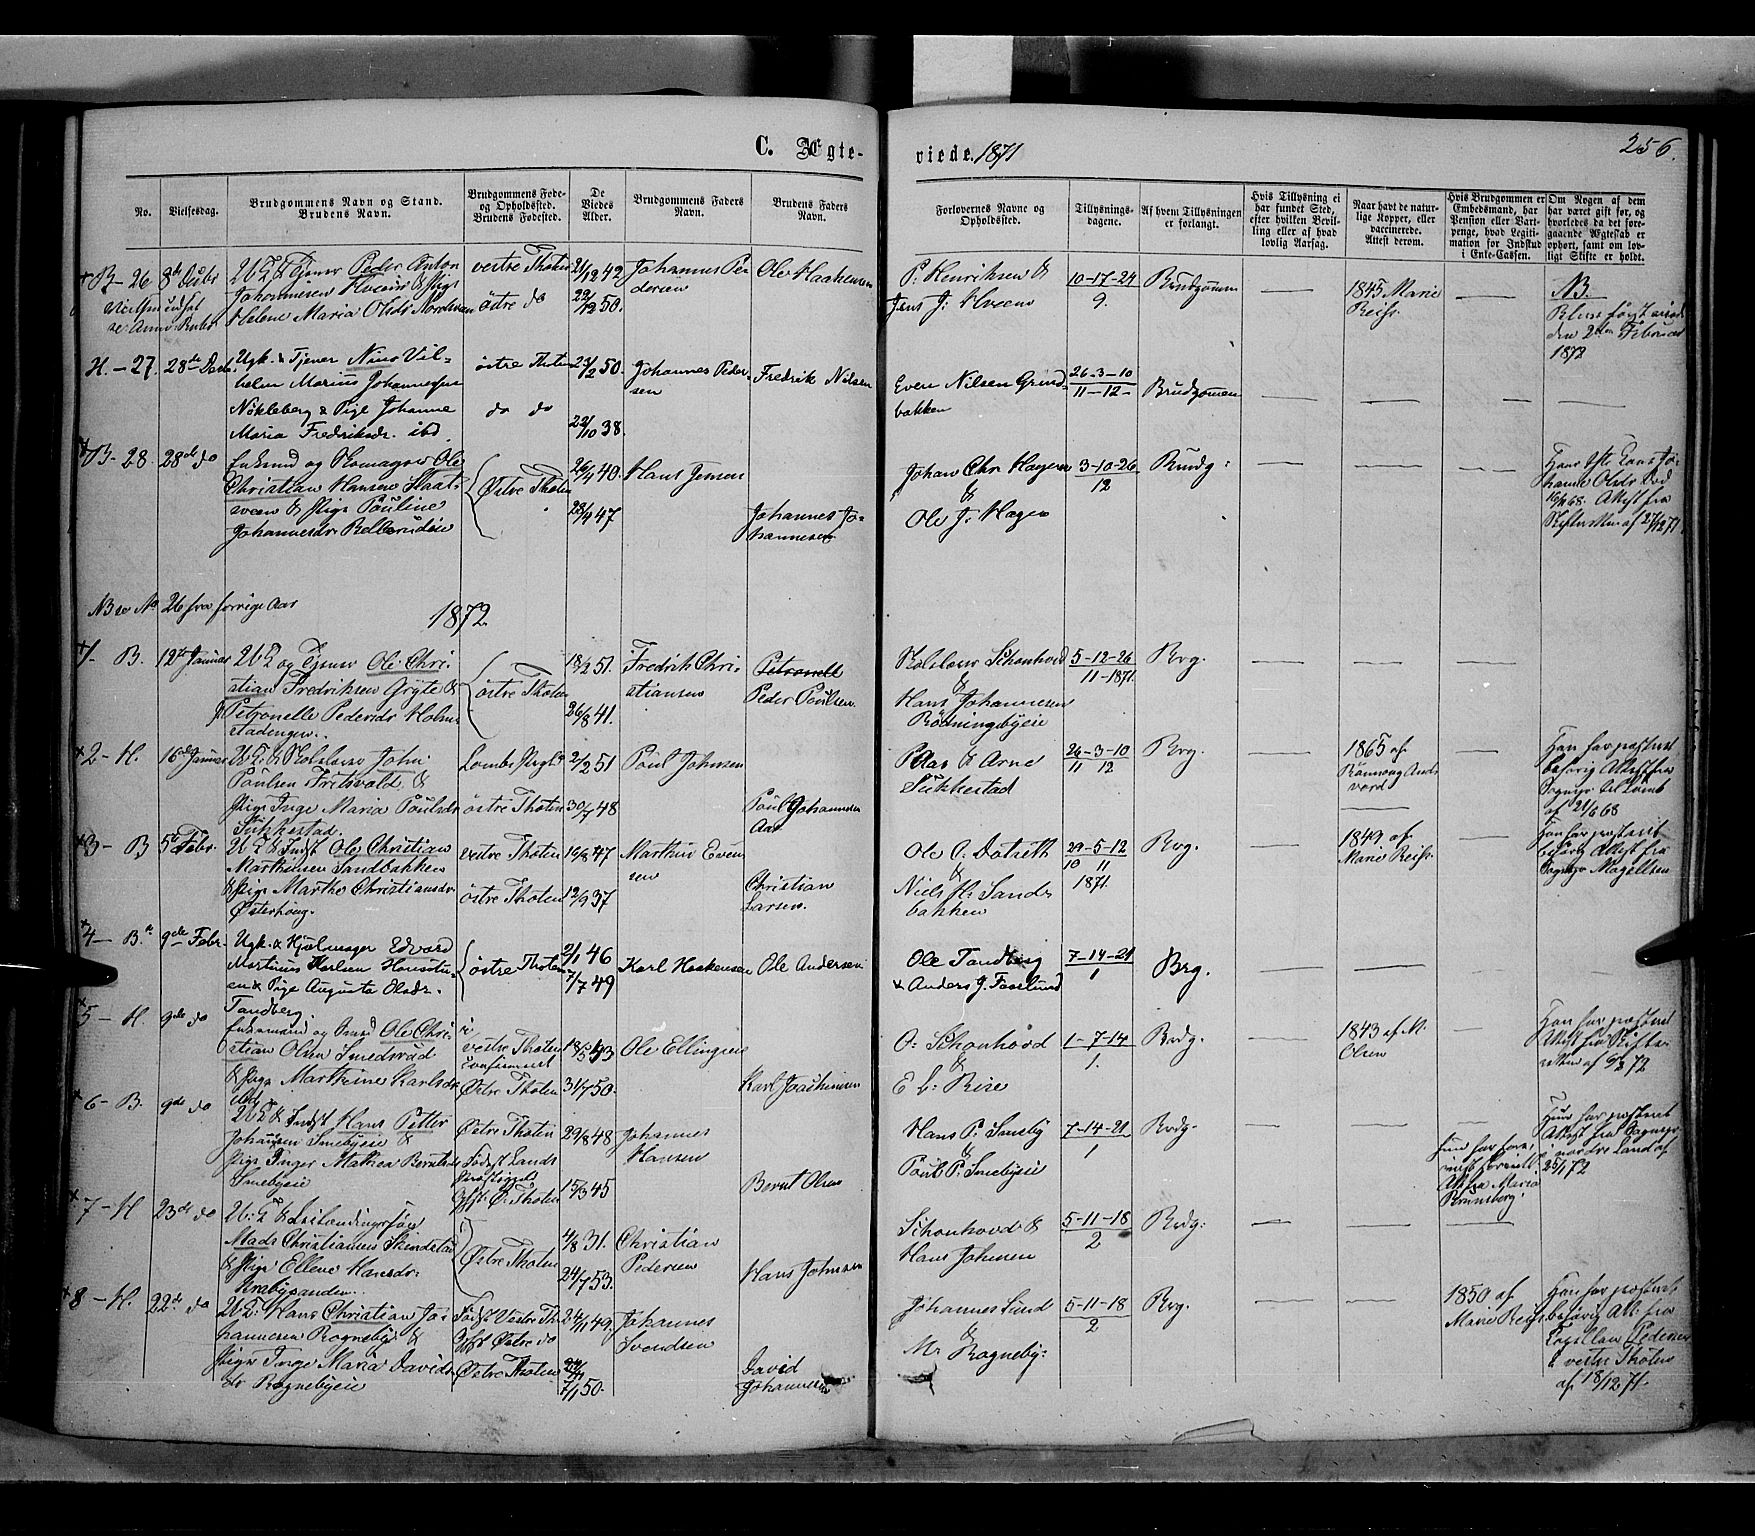 C. Ægte-
viede. 1871
256.
No.
Vielsesdag.
Brudgommens Navn og Stand.
Brudens Navn.
Brudgommens Føde-
og Opholdssted.
Brudens Fødested.
De
Viedes
Alder.
Brudgommens Faders
Navn.
Brudens Faders
Navn.
Forlovernes Navne og
Opholdssted.
Tillysnings-
dagene.
Af hvem Tillysningen
er forlangt.
Hvis Tillysning ei
har fundet Sted,
efter hvilken Bevil-
ling eller af hvad
lovlig Aarsag.
Naar havt de natur-
lige Kopper, eller
vaccinerede.
Attest derom.
Hvis Brudgommen er
Embedsmand, har
Pension eller Vart-
penge, hvad Legiti-
mation for Indskud
i Enke-Cassen.
Om Nogen af dem
har været gift før, og
hvorledes da det fore-
gaaende Ægteskab er
ophørt, samt om lov-
ligt Skifte er holdt.
B- 26 8de
Tjener Peder Anton
Johannesen Hveem & Pige
Helene Maria Olsdr
vestre Thoten
østre do
21/12 42
29/12 50.
Johannes Pe
dersen
Ole Haakensen
P. Henriksen &
Jens J. Hveem
10-17-24
9.
Brudgommen
1845 Marie
Reiss.
NB.
den 2den Februar
1872
H. - 27. 28de
Ugk. & Tjener Nils Vil-
helm Marius Johannesen
Nökleberg & Pige Johanne
Maria Fredriksdr. ibd.
östre Thoten
do do
23/2 50.
29/10 38.
Johannes Peder
sen
Fredrik Nilsen
Even Nilsen Grind-
bakken
26-3-10
11-12-
Brudgommen
B- 28. 28de do
Enkemd og Skomager Ole
Christian Hansen
& Pige Pauline
Johannesdr
Østre Thoten
26/4 40.
28/4 47
Hans Jensen
Johannes Jo-
hannesen
Johan Chr Hagen
&
Ole J. Hagen
3-10-26
12
Brudg:
NB se No 26 fra forrige Aar
1872
1- B. 12te Januar
U: E og Tjener Ole Chri-
stian Fredriksen Gryte &
Petronelle Pedersdr Holm-
stadengen.
østre Thoten
18/2 51.
26/8 41.
Fredrik Chri-
stiansen
Petronell
Peder Poulsen
Skolelærer Schonhovd
&
Hans Johannesen
Rödningsbyeie
5-12-26
11-1871.
Brg.
2- H. 16de Januar
U: E: & Skolelærer John
Poulsen Fretsvold &
Pige Inge Maria Poulsdr
Sukkestad.
Lombs Prgld
østre Thoten
2/2 51
30/7 48
Poul Johnsen
Poul Johannesen
Aas
P Aas & Arne
Sukkestad
26-3-10
11 12
Brg.
1865 af
Han har posteret
behørig Attest fra
Sognepr til Lomb
af 21/6 68
3- B 5te Febr.
U: E & Indst Ole Christian
Marthinsen Sandbakken
& Pige Marthe Christiansdr
Østerhoug.
vestre Thoten
østre Thoten
10/8 47
12/9 37
Marthin Even
sen
Christian
Larsen.
Ole O. Dotseth
&
Niels H. Sand-
bakken
29-5-12
10 11
1871.
Brg.
1849. af.
Marie Reiss.
Han har posteret
behørig Attest fra
Sognepr Magelssen
4- B. 9de Febr.
Ugk. & Hjulmager Edvard
Martinus Karlsen
& Pige Augusta Olsdr.
Tandberg.
østre Thoten
2/1 46
7/7 49
Karl Haakensen
Ole Andersen
Ole Tandberg
& Anders J. Fosslund
7-14-21
1
Brg.
5- H. 9de do
Enkemand og Smed Ole Chri-
stian Olsen Smedsrud
& Pige Marthine Karlsdr
vestre Thoten
confirmeret
Østre Thoten
18/5 43
31/7 50.
Ole Ellingsen
Karl Joachimsen
O: Schonhovd
&
E b: Rise
1-7-14
1.
Brdg.
1843 af M.
Olsen
Han har posteret
Attest fra Skifte-
retten af 9/2 72
6- B. 9de do
U: E & Indst Hans Petter
Johansen Smebyeie &
Pige Inger Mathea Berntsdr
Smebyeie
Østre Thoten
Født Lands
Præstegjeld
Opht. Ø. Thoten
29/8 48
15/3 45
Johannes
Hansen
Bernt Olsen
Hans P: Smeby
&
Poul P. Smebyeie
7-14-21
1
Brdg.
Hun har posteret
Attest fra Sognepr
i nordre Land af
25/1 72
7- H 23de do
Mads Christiansen Skindstad
& Pige Ellene Hansdr
Krabysanden.
Østre Thoten
4/8 31.
24/7 53.
Christian
Pedersen
Hans Johnsen
Schonhovd &
Hans Johnsen
5-11-18
2
Brdg:
8- H. 22de do
U: E: Hans Christian Jo-
hannesen Rognebye &
Pige Inge Maria Davids-
dr Rognebyeie
Født Vestre Tho
Opht Østre do
Østre Thoten
24/11 49.
7/1 50.
Johannes
Svendsen
David
Johannesen
Johannes Lund
&
M. Rogneby:
5-11-18
2
Brg.
1850 af
Marie Reiss.
Han har posteret
behørig Att. fra
Capellan Pedersen
i vestre Thoten
af 18/12 71.